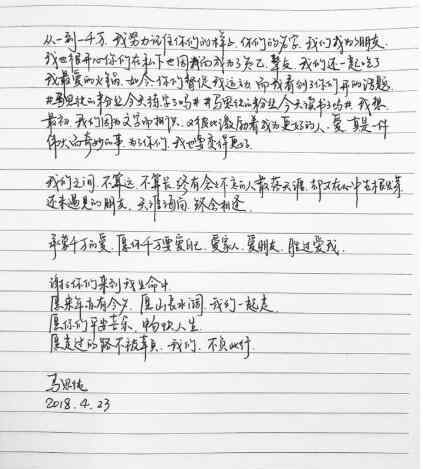 从一到一千万，我努力记住你们的样子，你们的名字，我们成为朋友，
我也很开心你们在私下也因为我成为了知己、挚友，我们还一起吃了
我最爱的火锅。如今你们督促我运动，而我看到了你们开的话题
#马思纯的粉丝今天练字了吗# #马思纯的粉丝今天读书了吗#，我想
最初，我们因为文字而相识，又彼此激励着成为更好的人，爱，真是一件
伟大而奇妙的事，为了你们，我也要变得更好。
我们之间，不算远，不算长，终有会不完的人散落天涯，却在心中生根发芽
还未遇见的朋友，天涯海角，终会相逢。
承蒙千万的爱，愿你千万要爱自己，爱家人，爱朋友，胜过爱我。
谢谢你们来到我生命中，
愿来年亦有今夕，愿山长水阔，我们一起走，
愿你们平安喜乐，畅快人生，
愿走过的路不被辜负，我们，不负此行。
马思纯
2018.4.23